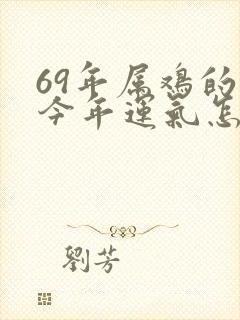 69年属鸡的
今年运气怎
劉芳